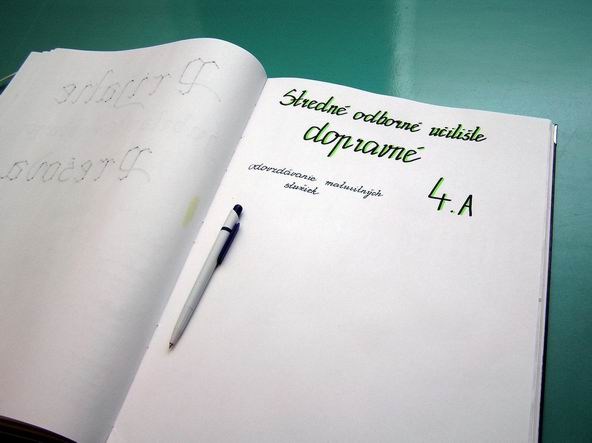 Stredné odborné učilište
dopravné
odovzdávanie maturitných
stužiek
4.A